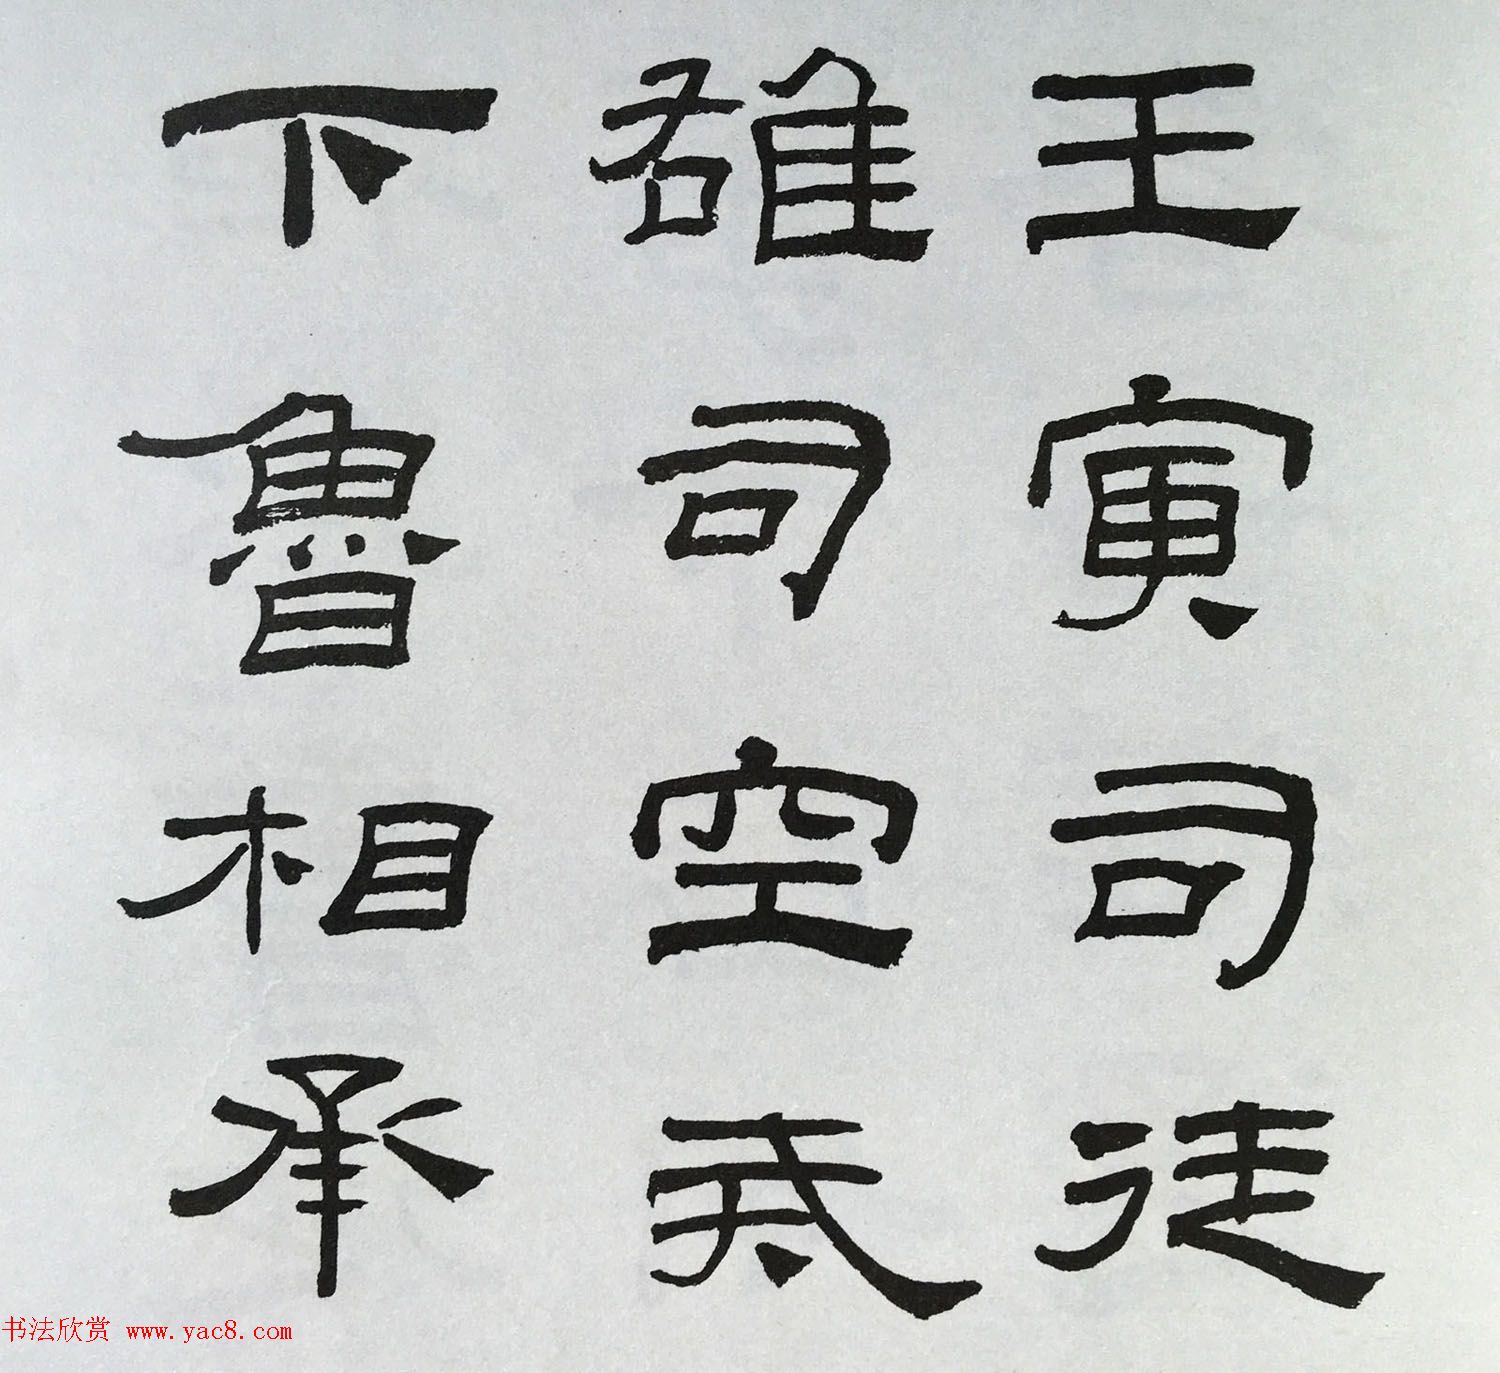 壬寅司徒
雄司空戒
下魯相承
书法欣赏 www.yac8.com